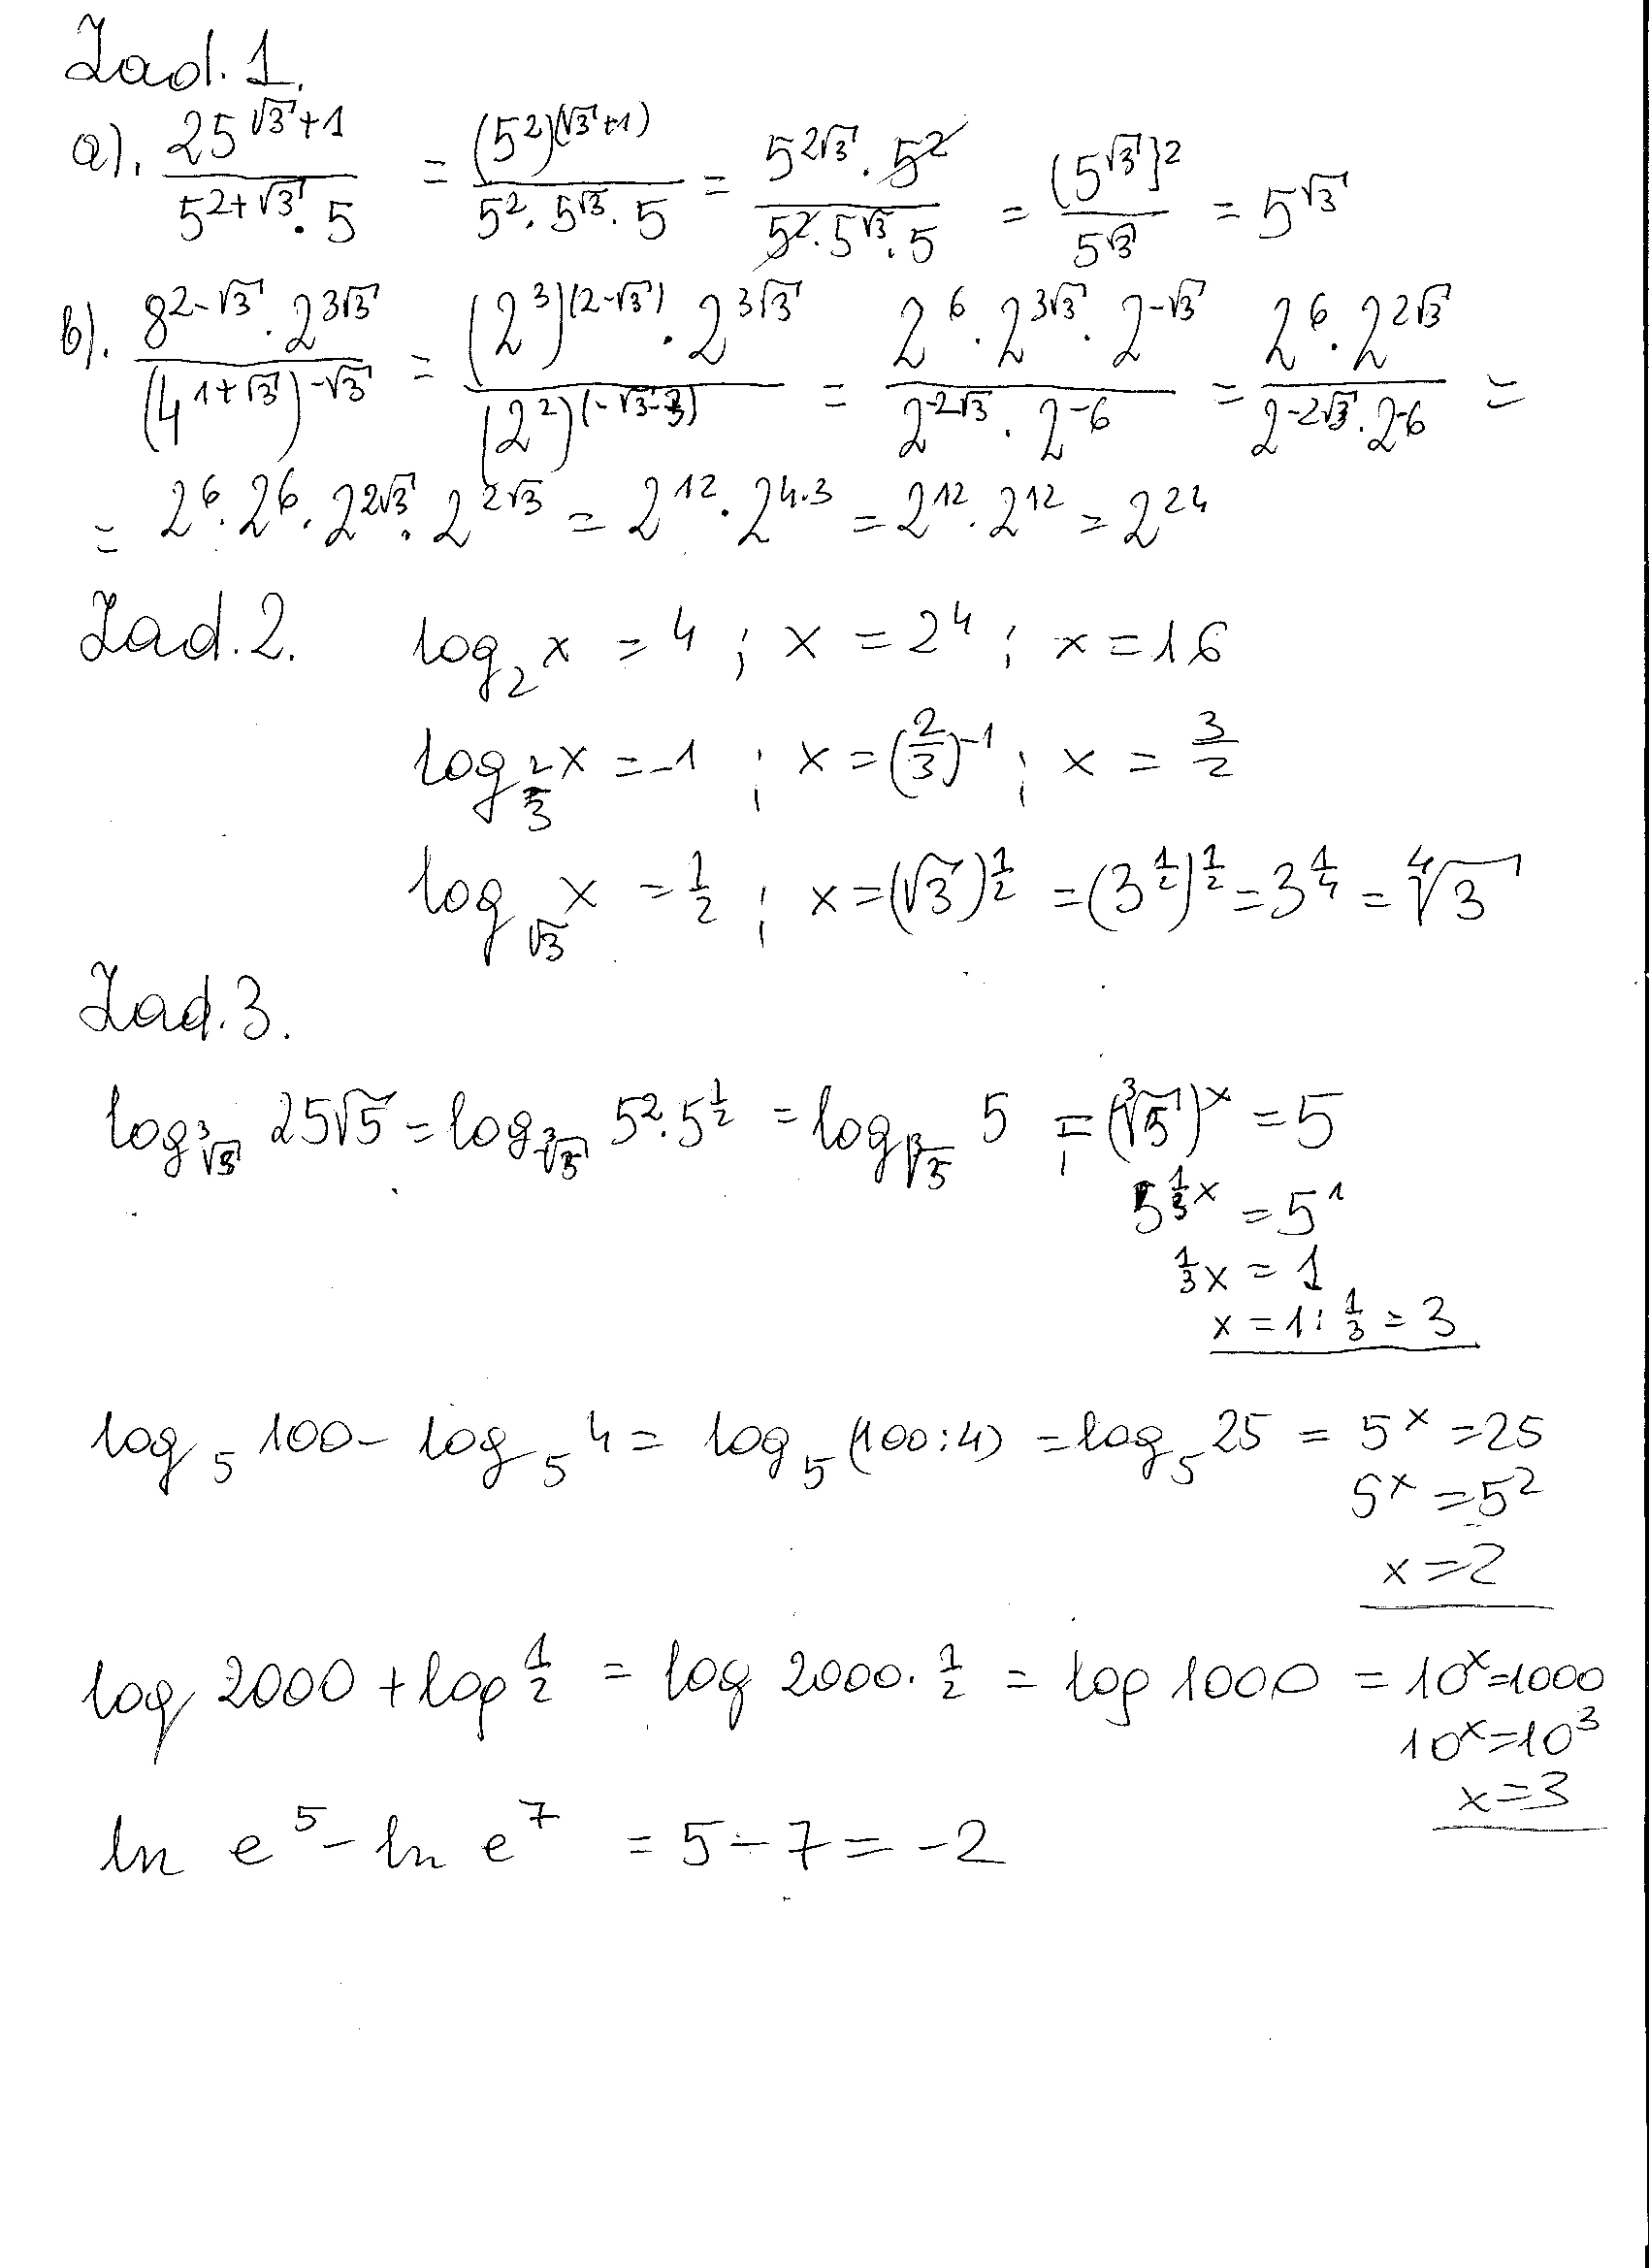 Zad. 1.
a). \frac{25^{\sqrt{3}+1}}{5^{2+\sqrt{3}} \cdot 5} = \frac{(5^2)^{(\sqrt{3}+1)}}{5^2 \cdot 5^{\sqrt{3}} \cdot 5} = \frac{5^{2\sqrt{3}} \cdot 5^2}{5^2 \cdot 5^{\sqrt{3}} \cdot 5} = \frac{(5^{\sqrt{3}})^2}{5^{\sqrt{3}}} = 5^{\sqrt{3}}
b). \frac{8^{2-\sqrt{3}} \cdot 2^{3\sqrt{3}}}{(4^{1+\sqrt{3}})^{-\sqrt{3}}} = \frac{(2^3)^{(2-\sqrt{3})} \cdot 2^{3\sqrt{3}}}{(2^2)^{(-\sqrt{3}-3)}} = \frac{2^6 \cdot 2^{3\sqrt{3}} \cdot 2^{-\sqrt{3}}}{2^{-2\sqrt{3}} \cdot 2^{-6}} = \frac{2^6 \cdot 2^{2\sqrt{3}}}{2^{-2\sqrt{3}} \cdot 2^{-6}} =
= 2^6 \cdot 2^6 \cdot 2^{2\sqrt{3}} \cdot 2^{2\sqrt{3}} = 2^{12} \cdot 2^{4 \cdot 3} = 2^{12} \cdot 2^{12} = 2^{24}
Zad. 2. log_2 x = 4 ; x = 2^4 ; x = 16
log_{\frac{2}{3}} x = -1 ; x = (\frac{2}{3})^{-1} ; x = \frac{3}{2}
log_{\sqrt{3}} x = \frac{1}{2} ; x = (\sqrt{3})^{\frac{1}{2}} = (3^{\frac{1}{2}})^{\frac{1}{2}} = 3^{\frac{1}{4}} = \sqrt[4]{3}
Zad. 3.
log_{\sqrt[3]{5}} 25\sqrt{5} = log_{\sqrt[3]{5}} 5^2 \cdot 5^{\frac{1}{2}} = log_{\sqrt[3]{5}} 5 = (\sqrt[3]{5})^x = 5
5^{\frac{1}{3}x} = 5^1
\frac{1}{3}x = 1
x = 1 : \frac{1}{3} = 3
log_5 100 - log_5 4 = log_5 (100:4) = log_5 25 = 5^x = 25
5^x = 5^2
x = 2
log 2000 + log \frac{1}{2} = log 2000 \cdot \frac{1}{2} = log 1000 = 10^x = 1000
10^x = 10^3
x = 3
ln e^5 - ln e^7 = 5 - 7 = -2